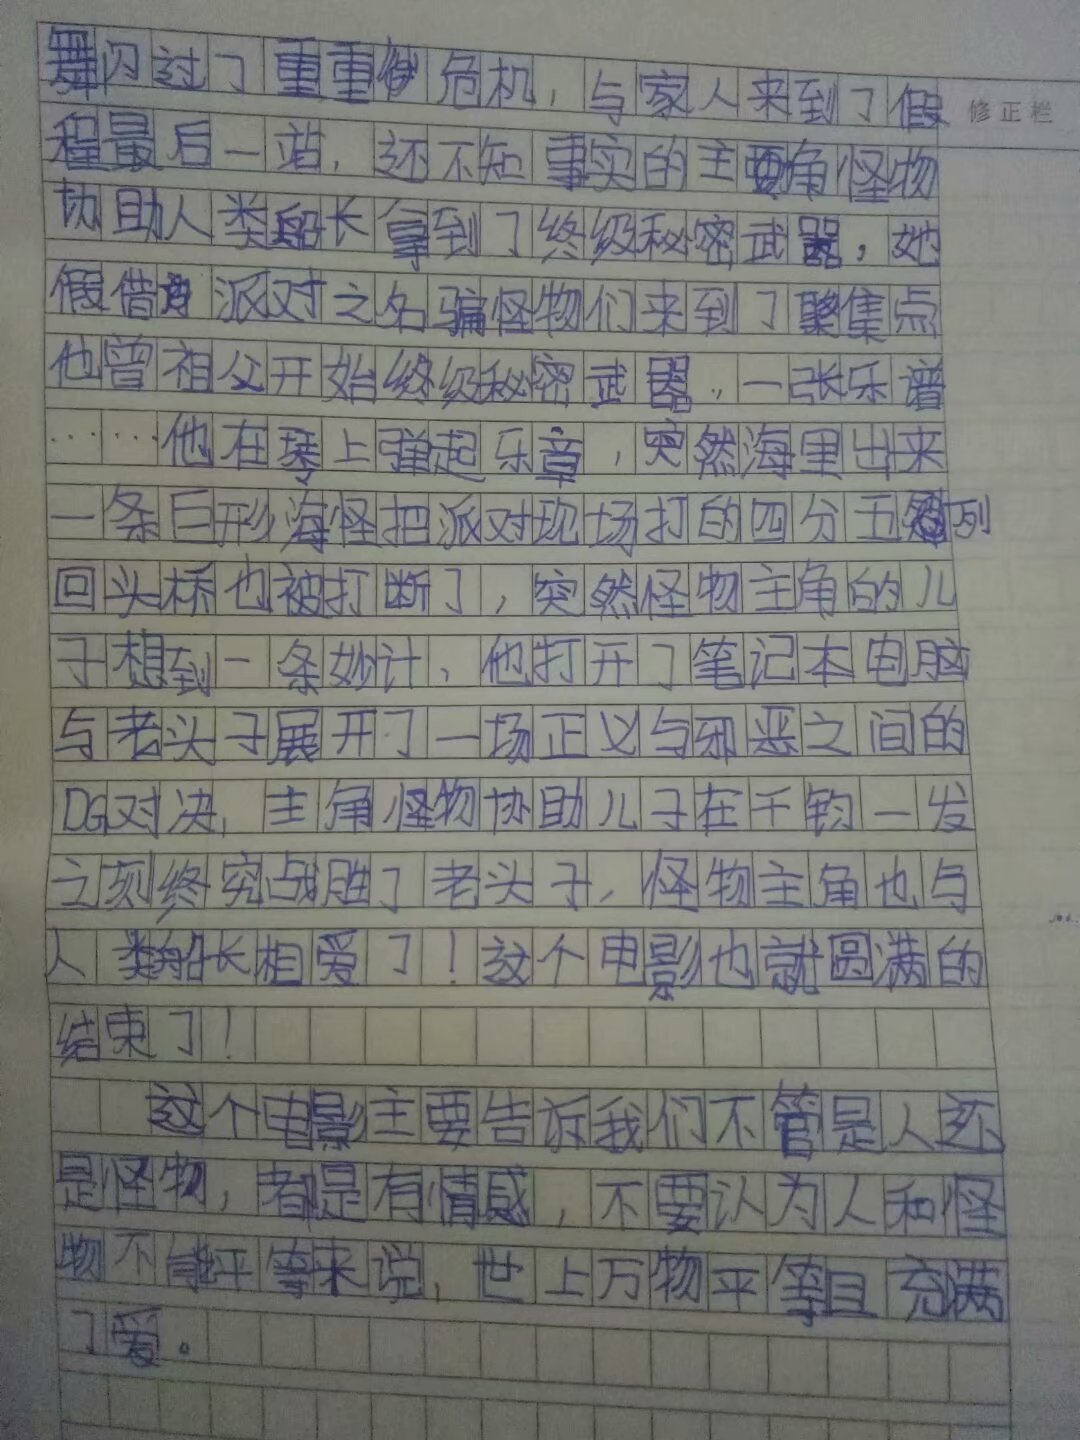 舞闪过了重重危机，与家人来到了假
修正栏
程最后一站，还不知事实的主要角怪物
协助人类船长拿到了终级秘密武器，她
假借为派对之名骗怪物们来到了聚集点
他曾祖父开始终级秘密武器，一张乐谱
……他在琴上弹起乐章，突然海里出来
一条巨形海怪把派对现场打的四分五列
回头桥也被打断了，突然怪物主角的儿
子想到一条妙计，他打开了笔记本电脑
与老头子展开了一场正义与邪恶之间的
DG对决，主角怪物协助儿子在千钧一发
之刻终究战胜了老头子，怪物主角也与
人类船长相爱了！这个电影也就圆满的
结束了！
这个电影主要告诉我们不管是人还
是怪物，都是有情感，不要认为人和怪
物不能平等来说，世上万物平等且充满
了爱。